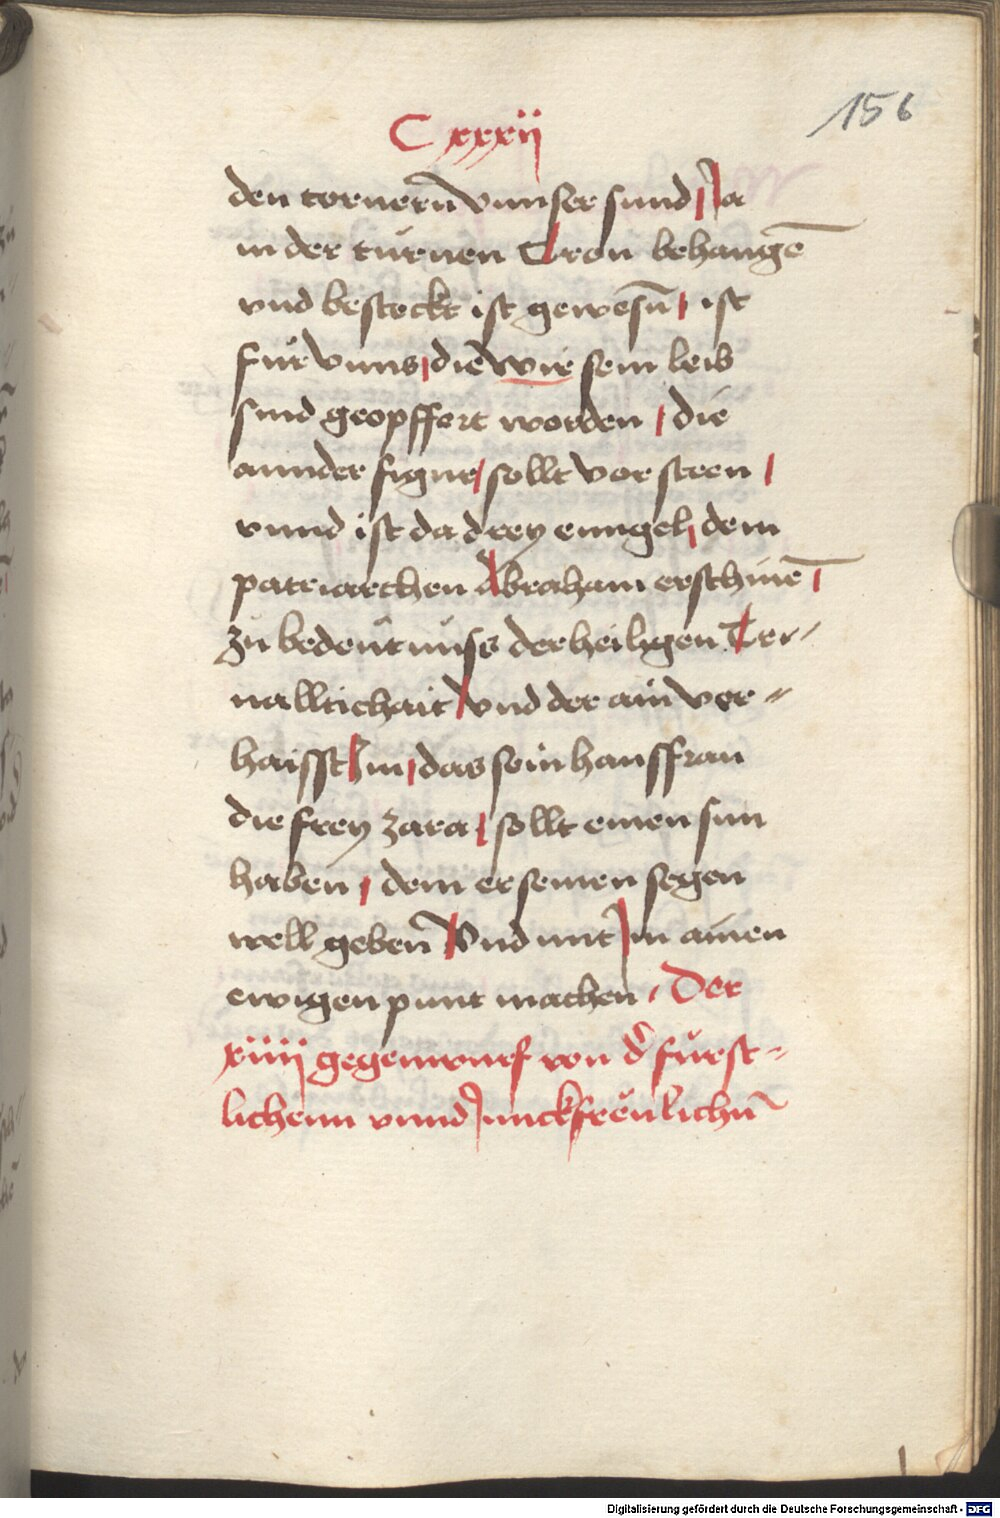 156
Cxxxii
den tornern̄ vnnser sund Ja
in der turnen Cron behangē
vnd besteckt ist gewesn̄ ist
für vnns die wir sein leib
sind geopffert worden die
annder figur sollt vor steen
vnnd ist da drey enngel dem
patriarchen Abraham erschinē
zu bedeutnuss der heiligen Ter-
nalltichait vnd der ain ver-
haisst Im das sein hausffrau
die frey zara sollt einen sun
haben dem er seinen segen
well geben̄ Vnd mit Im ainen
ewigen punt machen Der
xiiii gegenwurf von d' fürst-
lichenn vnnd Junckfreulichn̄
Digitalisierung gefördert durch die Deutsche Forschungsgemeinschaft - DFG